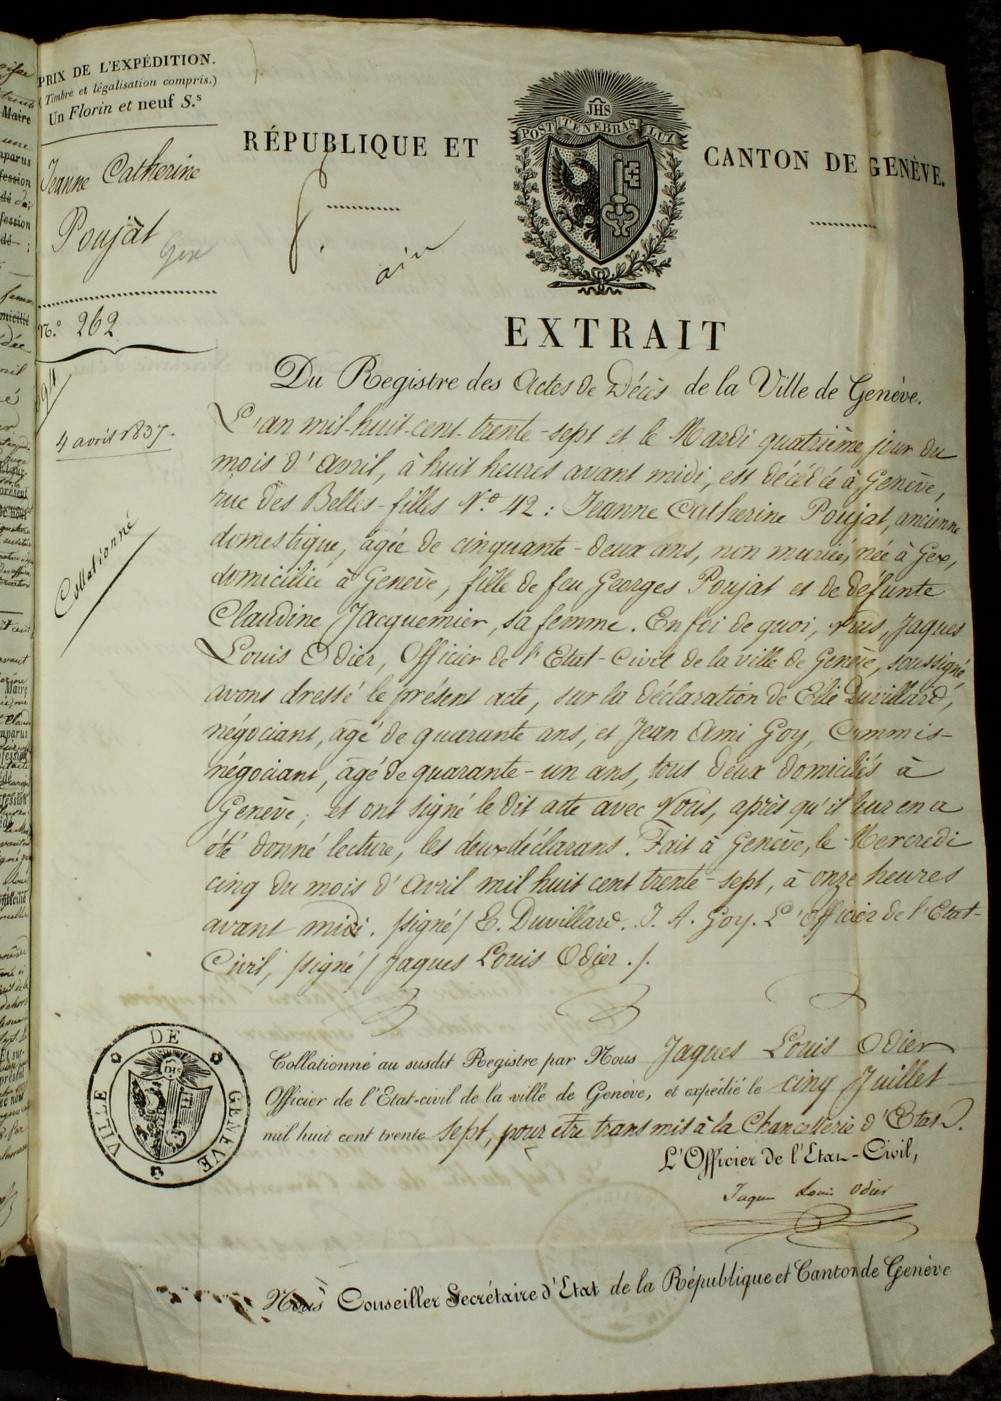 PRIX DE L'EXPÉDITION.
(Timbre et légalisation compris.)
Un Florin et neuf S.s
Jeanne Catherine
Poujat
Gex
N.o 262
4 avril 1837.
Collationné
RÉPUBLIQUE ET
CANTON DE GENÈVE.
JHS
POST TENEBRAS LUX
ain
EXTRAIT
Du Registre des Actes de Décès de la Ville de Genève.
L'an mil-huit-cent-trente-sept et le Mardi quatrième jour du
mois d'avril, à huit heures avant midi, est décédée à Genève,
rue des Belles-filles No 42 : Jeanne Catherine Poujat, ancienne
domestique, agée de cinquante-deux ans, non mariée, née à Gex,
domiciliée à Genève, fille de feu Georges Poujat et de défunte
Claudine Jacquemier, sa femme. En foi de quoi, Nous, Jaques
Louis Odier, Officier de l'Etat-Civil de la ville de Genève, soussigné,
avons dressé le présent acte, sur la déclaration de Elie Duvillard,
négociant, âgé de quarante ans, et Jean Ami Goy, Commis-
négociant, âgé de quarante-un ans, tous deux domiciliés à
Genève, et ont signé le dit acte avec Nous, après qu'il leur en a
été donné lecture, les deux déclarans. Fait à Genève, le Mercredi
cinq du mois d'Avril mil huit cent trente-sept, à onze heures
avant midi. /signé/ E. Duvillard. J. A. Goy. L'Officier de l'Etat-
Civil, /signé/ Jaques Louis Odier./.
VILLE DE GENEVE
JHS
Collationné au susdit Registre par Nous Jaques Louis Odier
Officier de l'Etat-civil de la ville de Genève, et expédié le cinq Juillet
mil huit cent trente sept, pour etre transmis à la Chancellerie d'Etat.
L'Officier de l'Etat-Civil,
Jaques Louis Odier
Nous Conseiller Secrétaire d'Etat de la République et Canton de Genève